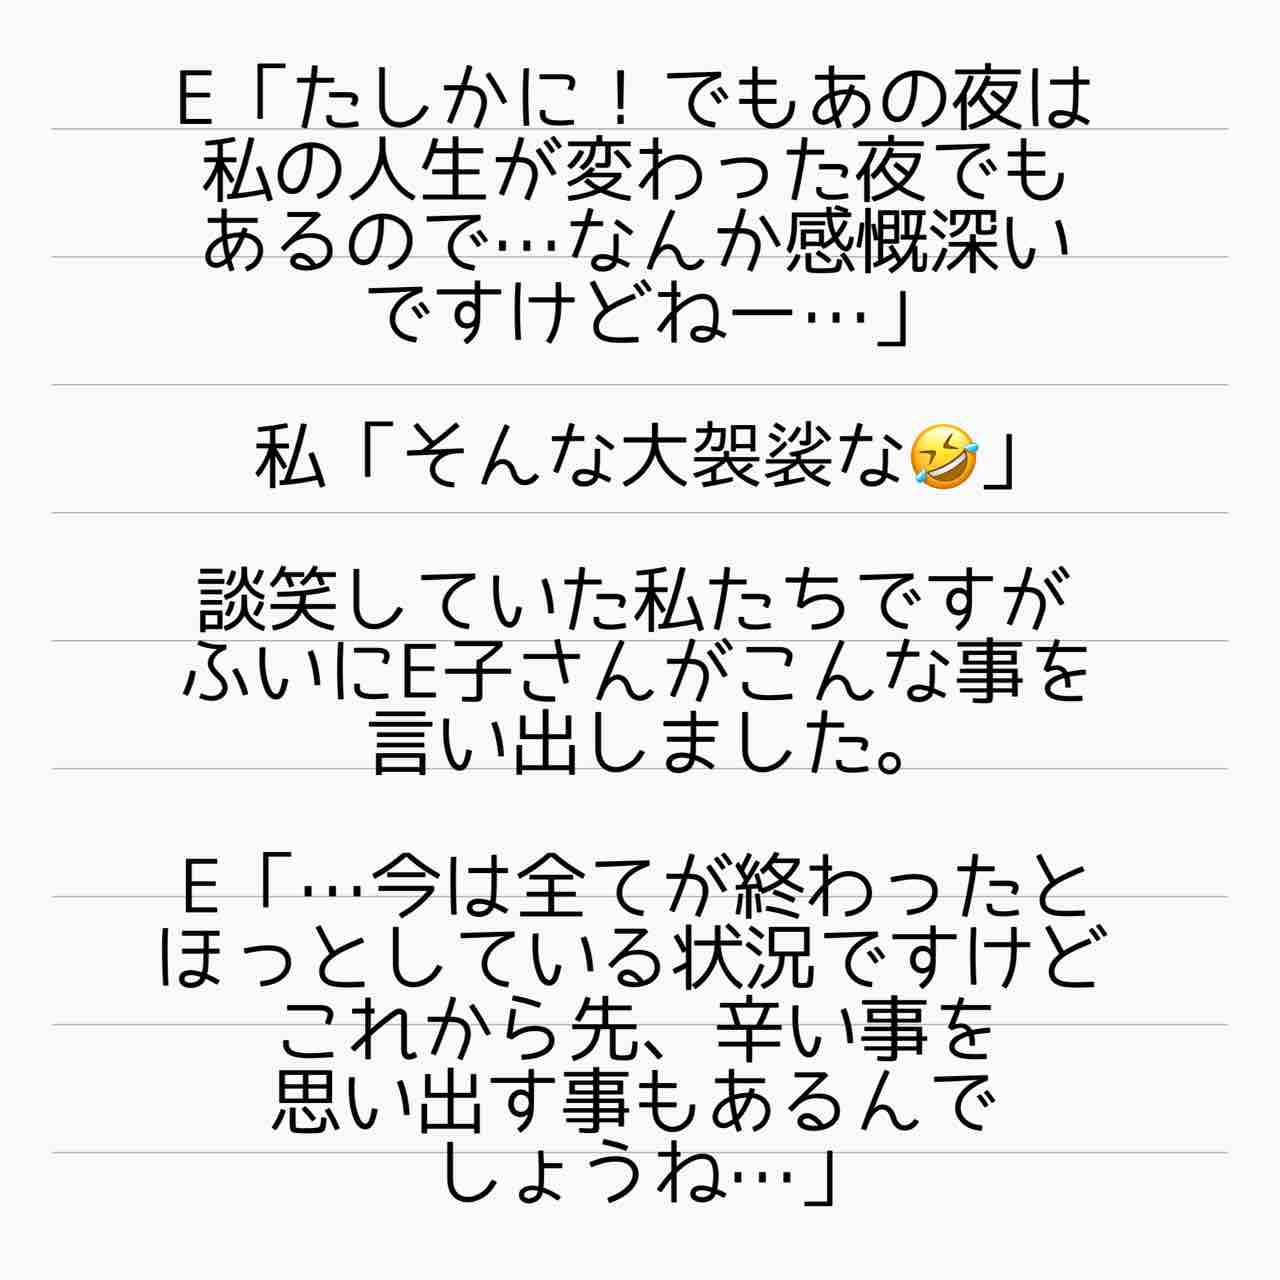 E「たしかに！でもあの夜は
私の人生が変わった夜でも
あるので…なんか感慨深い
ですけどねー…」
私「そんな大袈裟な🤣」
談笑していた私たちですが
ふいにE子さんがこんな事を
言い出しました。
E「…今は全てが終わったと
ほっとしている状況ですけど
これから先、辛い事を
思い出す事もあるんで
しょうね…」